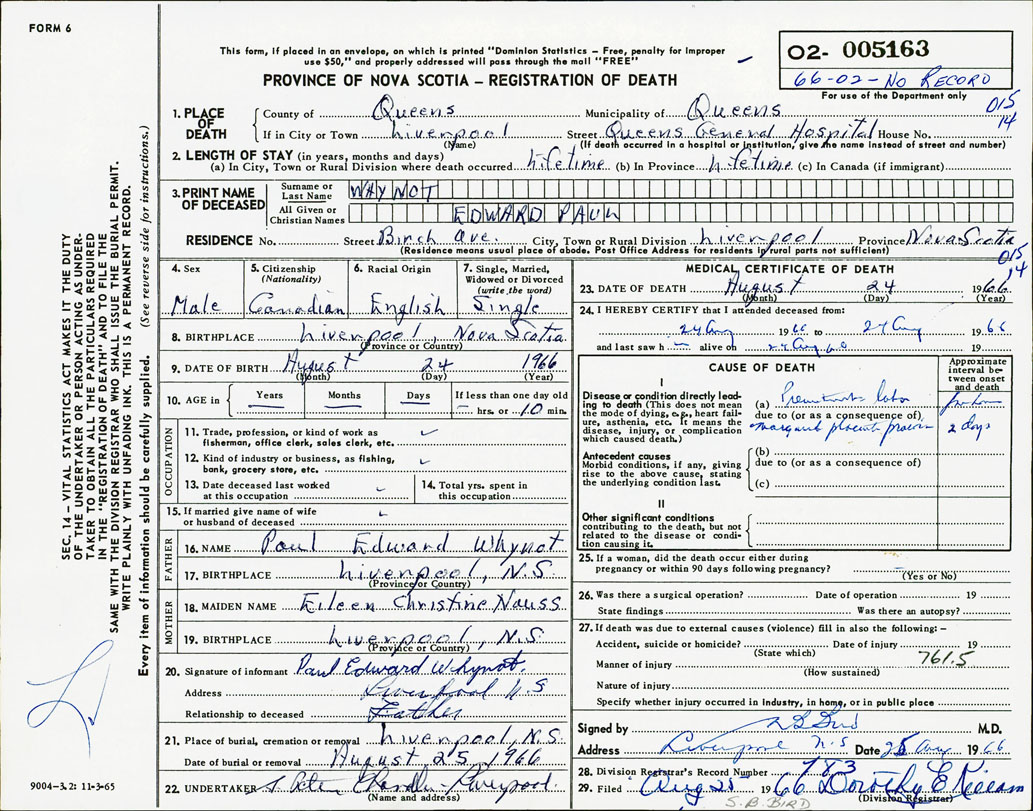 FORM 6
This form, if placed in an envelope, on which is printed "Dominion Statistics – Free, penalty for improper
use $50," and properly addressed will pass through the mail "FREE"
PROVINCE OF NOVA SCOTIA – REGISTRATION OF DEATH
O2- 005163
66-02-No RECORD
For use of the Department only
015
14
1. PLACE OF DEATH
County of Queens Municipality of Queens
If in City or Town Liverpool Street Queens General Hospital House No.
(Name) (If death occurred in a hospital or institution, give the name instead of street and number)
2. LENGTH OF STAY (in years, months and days)
(a) In City, Town or Rural Division where death occurred lifetime (b) In Province lifetime (c) In Canada (if immigrant)
3. PRINT NAME OF DECEASED
Surname or Last Name WHYNOT
All Given or Christian Names EDWARD PAUL
RESIDENCE No. Street Birch Ave. City, Town or Rural Division Liverpool Province Nova Scotia
(Residence means usual place of abode. Post Office Address for residents in rural parts not sufficient)
015
14
4. Sex
Male
5. Citizenship (Nationality)
Canadian
6. Racial Origin
English
7. Single, Married, Widowed or Divorced (write the word)
Single
8. BIRTHPLACE Liverpool, Nova Scotia
(Province or Country)
9. DATE OF BIRTH August 24 1966
(Month) (Day) (Year)
10. AGE in Years Months Days If less than one day old
hrs. or 10 min.
OCCUPATION
11. Trade, profession, or kind of work as
fisherman, office clerk, sales clerk, etc.
12. Kind of industry or business, as fishing,
bank, grocery store, etc.
13. Date deceased last worked
at this occupation
14. Total yrs. spent in
this occupation
15. If married give name of wife
or husband of deceased
FATHER
16. NAME Paul Edward Whynot
17. BIRTHPLACE Liverpool, N.S.
(Province or Country)
MOTHER
18. MAIDEN NAME Eileen Christine Nauss
19. BIRTHPLACE Liverpool, N.S.
(Province or Country)
20. Signature of informant Paul Edward Whynot
Address Liverpool N.S
Relationship to deceased Father
21. Place of burial, cremation or removal Liverpool, N.S.
Date of burial or removal August 25, 1966
22. UNDERTAKER Chandler Liverpool.
(Name and address)
MEDICAL CERTIFICATE OF DEATH
23. DATE OF DEATH August 24 1966
(Month) (Day) (Year)
24. I HEREBY CERTIFY that I attended deceased from:
24 Aug 1966 to 24 Aug 1966
and last saw h alive on 24 Aug 66 19
CAUSE OF DEATH
Approximate interval between onset and death
I
Disease or condition directly leading to death (This does not mean the mode of dying, e.g., heart failure, asthenia, etc. It means the disease, injury, or complication which caused death.)
(a) Premature labor
due to (or as a consequence of)
placenta praevia 2 days
Antecedent causes
Morbid conditions, if any, giving rise to the above cause, stating the underlying condition last.
(b)
due to (or as a consequence of)
(c)
II
Other significant conditions
contributing to the death, but not related to the disease or condition causing it.
25. If a woman, did the death occur either during
pregnancy or within 90 days following pregnancy?
(Yes or No)
26. Was there a surgical operation? Date of operation 19
State findings Was there an autopsy?
27. If death was due to external causes (violence) fill in also the following: –
Accident, suicide or homicide? Date of injury 19
(State which)
761.5
Manner of injury
(How sustained)
Nature of injury
Specify whether injury occurred in industry, in home, or in public place
Signed by M.D.
Address Liverpool N.S Date 25 Aug 1966
28. Division Registrar's Record Number 783
29. Filed Aug 25 1966 Dorothy E
(Division Registrar)
S.B. BIRD
SEC. 14 – VITAL STATISTICS ACT MAKES IT THE DUTY
OF THE UNDERTAKER OR PERSON ACTING AS UNDER-
TAKER TO OBTAIN ALL THE PARTICULARS REQUIRED
IN THE "REGISTRATION OF DEATH" AND TO FILE THE
SAME WITH THE DIVISION REGISTRAR WHO SHALL ISSUE THE BURIAL PERMIT.
WRITE PLAINLY WITH UNFADING INK. THIS IS A PERMANENT RECORD.
Every item of information should be carefully supplied. (See reverse side for instructions.)
9004-3.2: 11-3-65